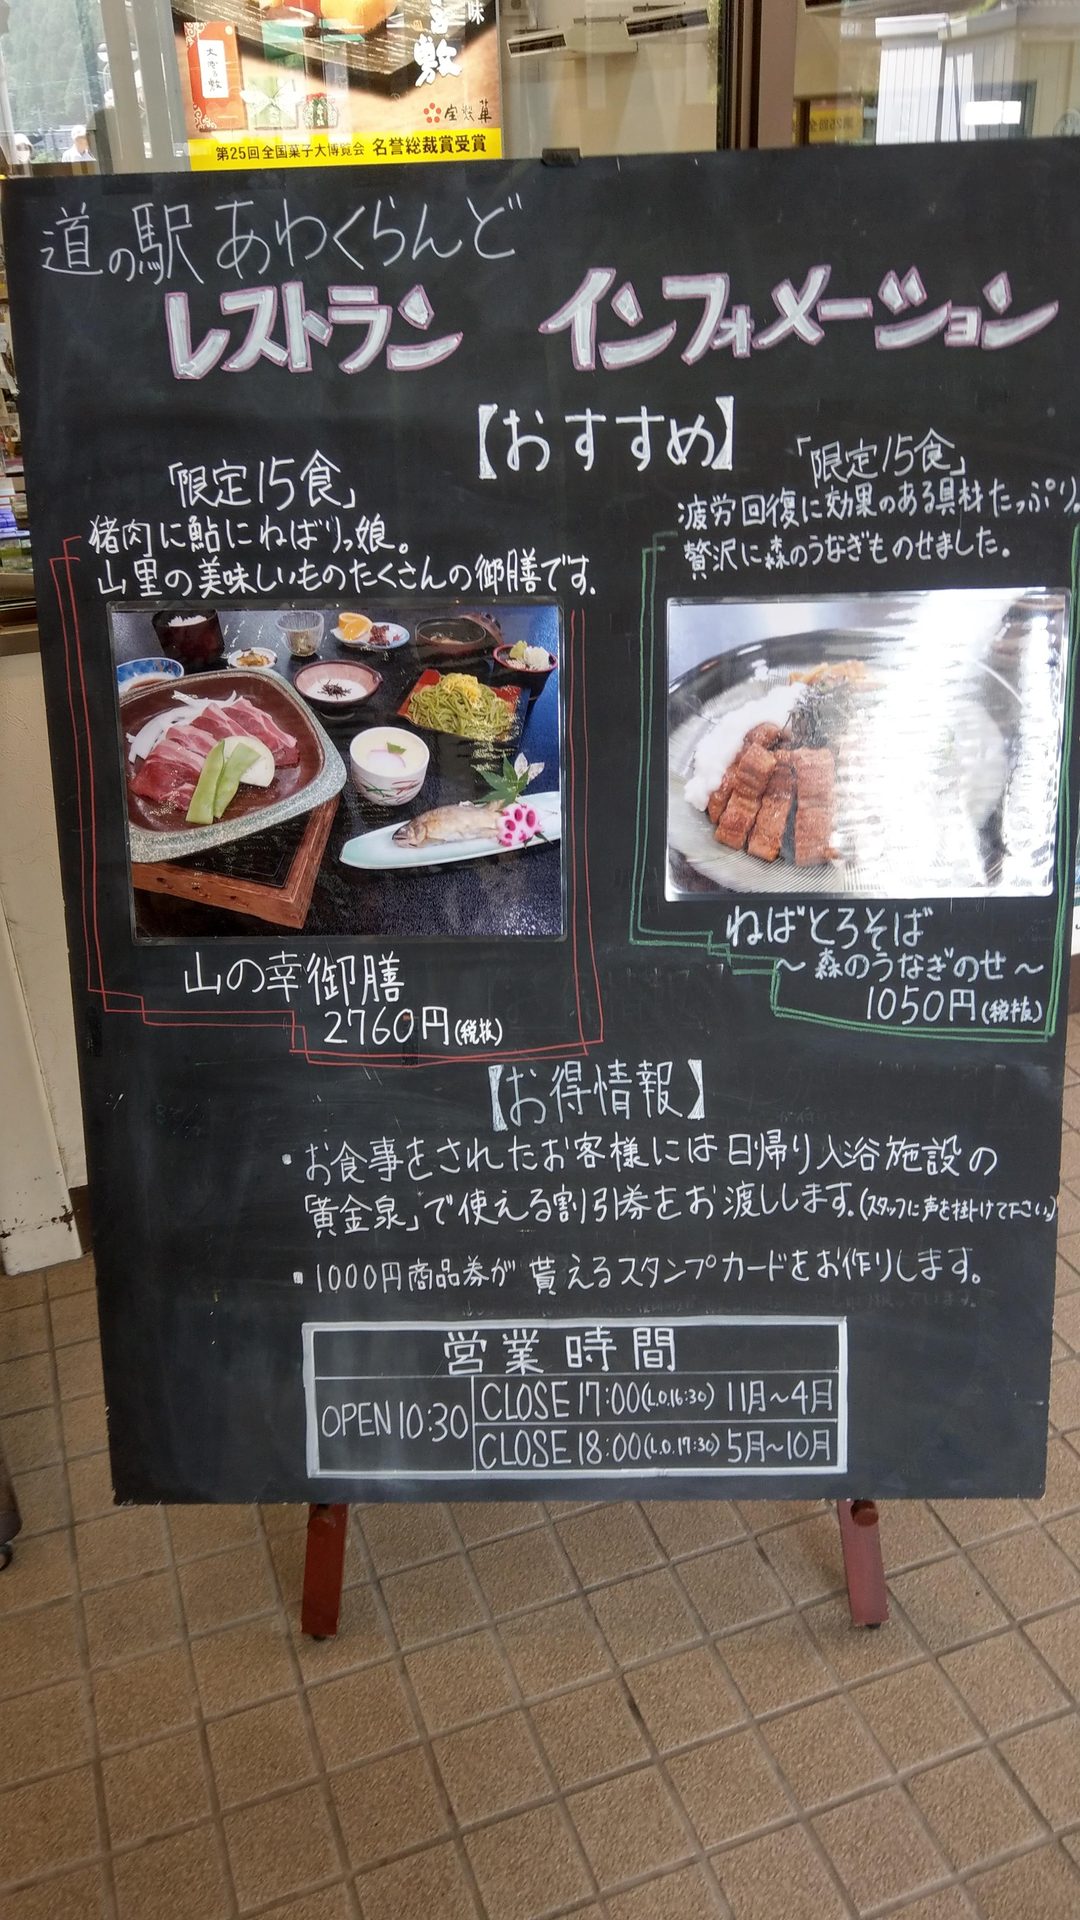 味
第25回全国菓子大博覧会 名誉総裁賞受賞
道の駅 あわくらんど
レストラン インフォメーション
【おすすめ】
「限定15食」
猪肉に鮎にねばりっ娘。
山里の美味しいものたくさんの御膳です.
山の幸御膳
2760円(税抜)
「限定15食」
疲労回復に効果のある具材たっぷり。
贅沢に森のうなぎものせました。
ねばとろそば
～森のうなぎのせ～
1050円(税抜)
【お得情報】
・お食事をされたお客様には日帰り入浴施設の
「黄金泉」で使える割引券をお渡しします。(スタッフに声を掛けて下さい。)
・1000円商品券が貰えるスタンプカードをお作りします。
営業時間
OPEN10:30
CLOSE17:00(L.O.16:30) 11月～4月
CLOSE18:00(L.O.17:30) 5月～10月